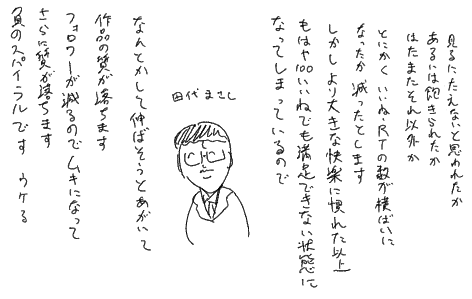 見るにたえないと思われたか
あるいは飽きられたか
はたまたそれ以外か
とにかくいいね・RTの数が横ばいに
なったか減ったとします
しかしより大きな快楽に慣れた以上
もはや100いいねでも満足できない状態に
なってしまっているので
田代まさし
なんとかして伸ばそうとあがいて
作品の質が落ちます
フォロワーが減るのでムキになって
さらに質が落ちます
負のスパイラルです ウケる